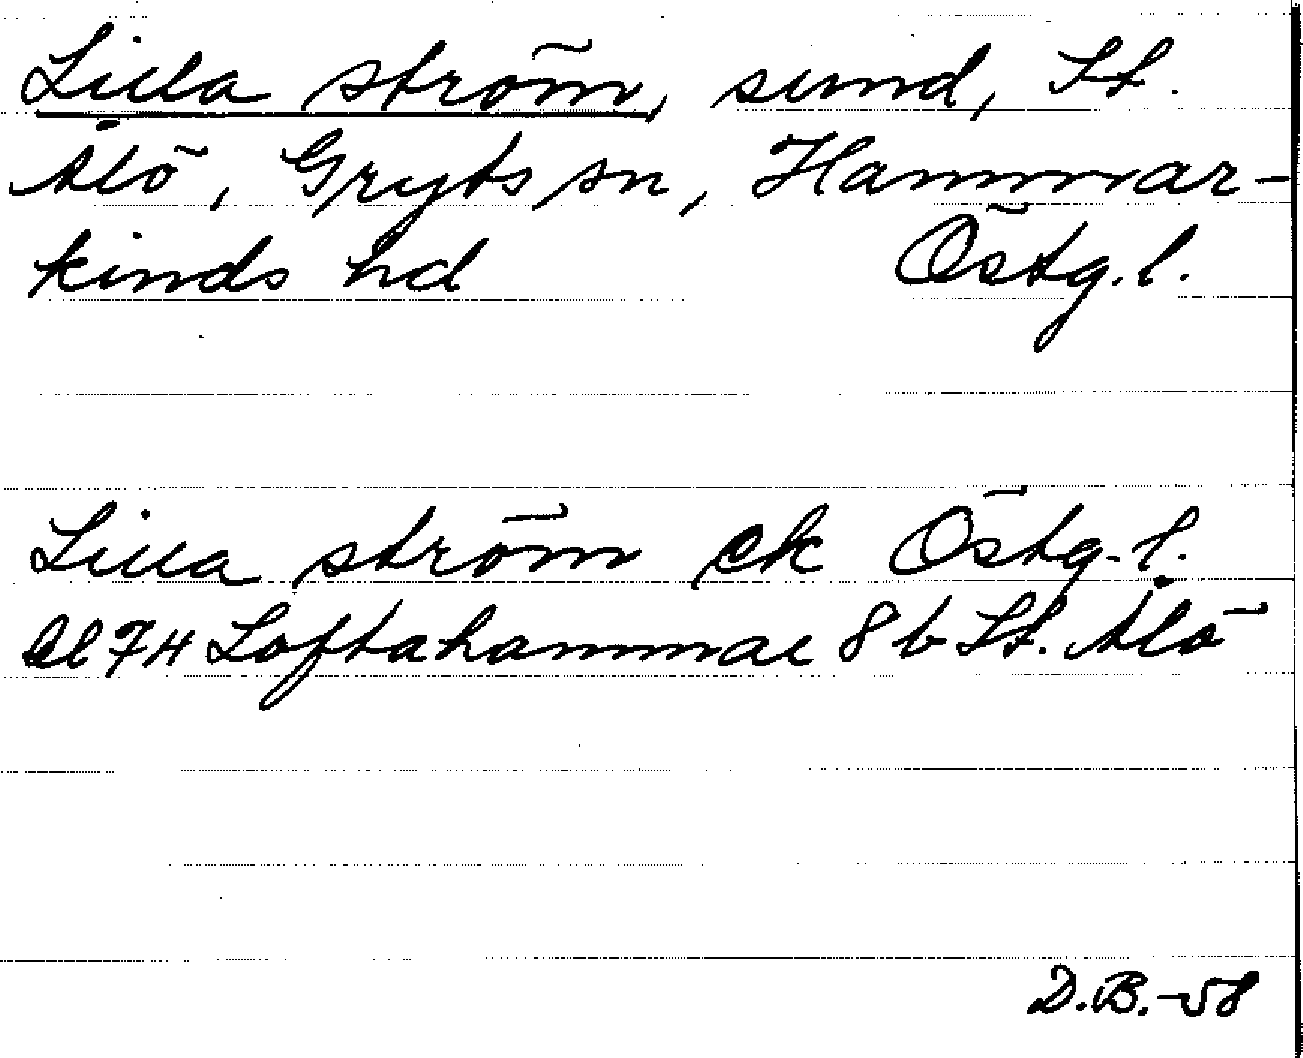 Lilla ström, sund, St.
Ålö, Gryts sn, Hammar-
kinds hd Östg.l.
Lilla ström ek Östg.l.
Bl 7H Loftahammar 8b St. Ålö
D.B.-58